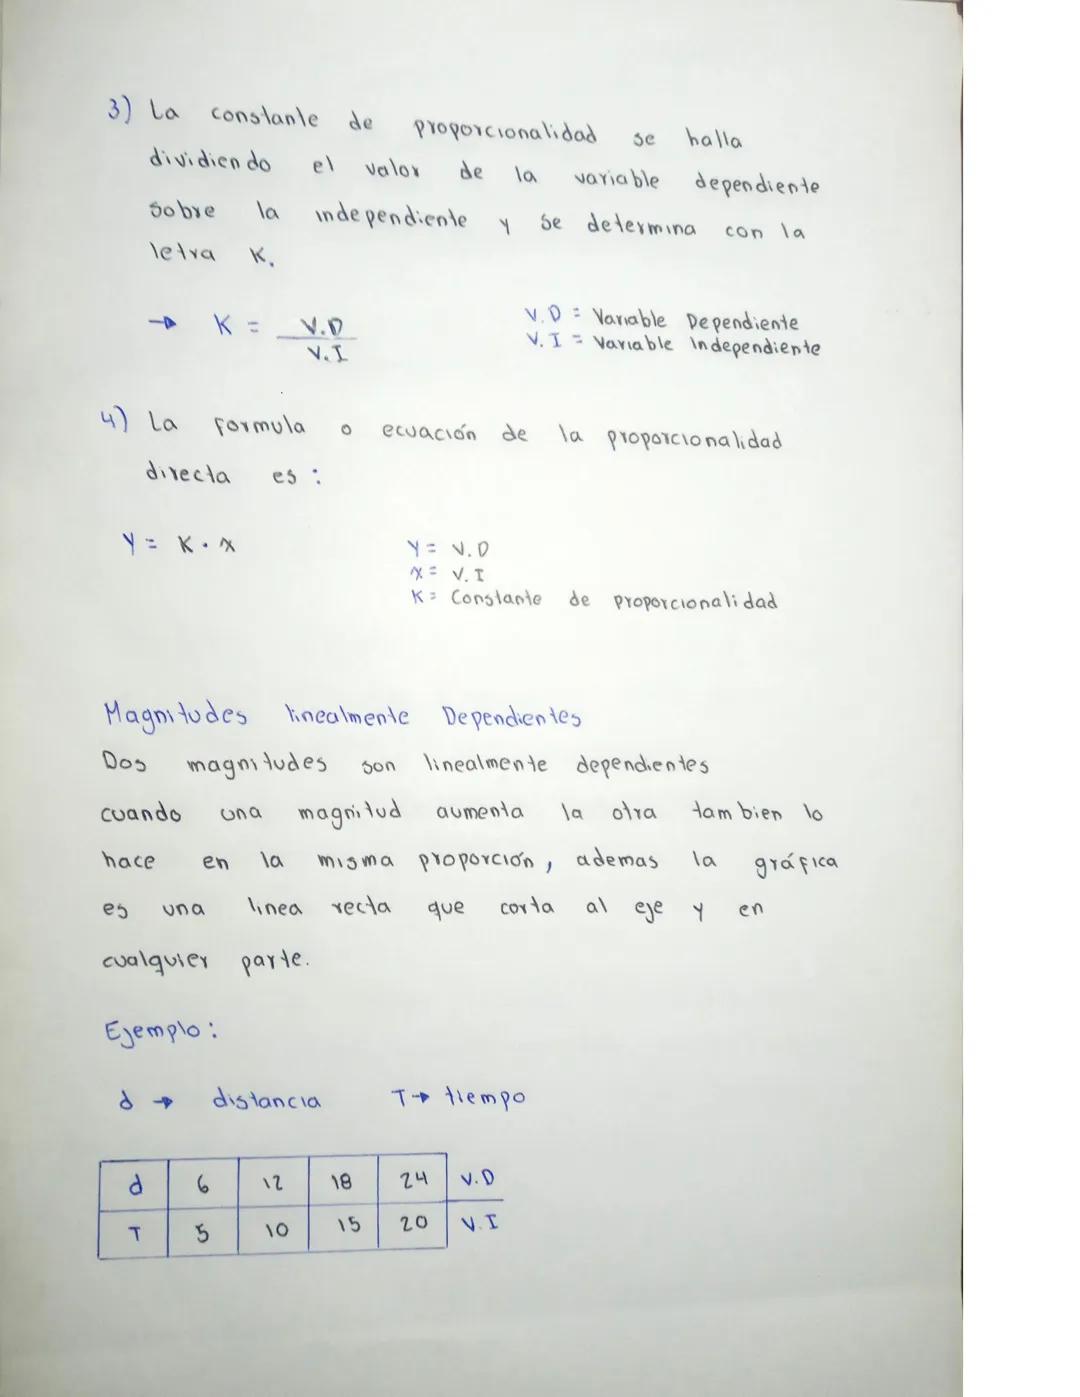 3) La constante de proporcionalidad se halla
dividiendo el valor de la variable dependiente
sobre la independiente y se determina con la
letra K.
→ K = V.D / V.I
V.D = Variable Dependiente
V.I = Variable Independiente
4) La formula o ecuación de la proporcionalidad
directa es :
Y = K . x
Y = V.D
x = V.I
K = Constante de proporcionalidad
Magnitudes linealmente Dependientes
Dos magnitudes son linealmente dependientes
cuando una magnitud aumenta la otra tambien lo
hace en la misma proporción, ademas la gráfica
es una linea recta que corta al eje y en
cualquier parte.
Ejemplo:
d → distancia T → tiempo
d 6 12 18 24 V.D
T 5 10 15 20 V.I